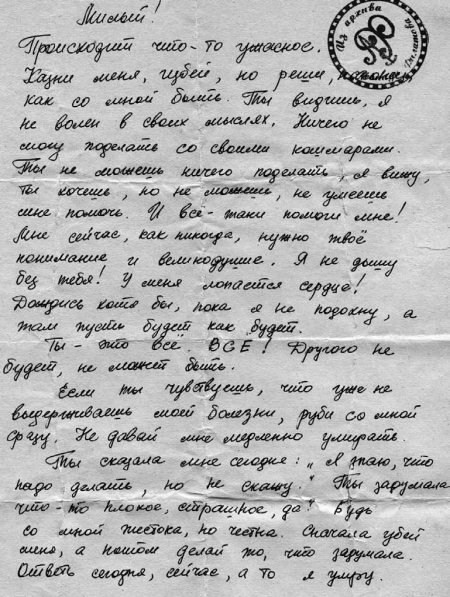 Милый!
Происходит что-то ужасное.
Казни меня, избей, но реши, наконец,
как со мной быть. Ты видишь, я
не волен в своих мыслях. Ничего не
могу поделать со своими кошмарами.
Ты не можешь ничего поделать, я вижу,
ты хочешь, но не можешь, не умеешь
мне помочь. И всё-таки помоги мне!
Мне сейчас, как никогда, нужно твоё
понимание и великодушие. Я не дышу
без тебя! У меня лопается сердце!
Дождись хотя бы, пока я не подохну, а
там пусть будет как будет.
Ты - это всё. ВСЁ! Другого не
будет, не может быть.
Если ты чувствуешь, что уже не
выдерживаешь моей болезни, руби со мной
сразу. Не давай мне медленно умирать.
Ты сказала мне сегодня: „Я знаю, что
надо делать, но не скажу." Ты задумала
что-то плохое, страшное, да? Будь
со мной жестока, но честна. Сначала убей
меня, а потом делай то, что задумала.
Ответь сегодня, сейчас, а то я умру.
Из архива